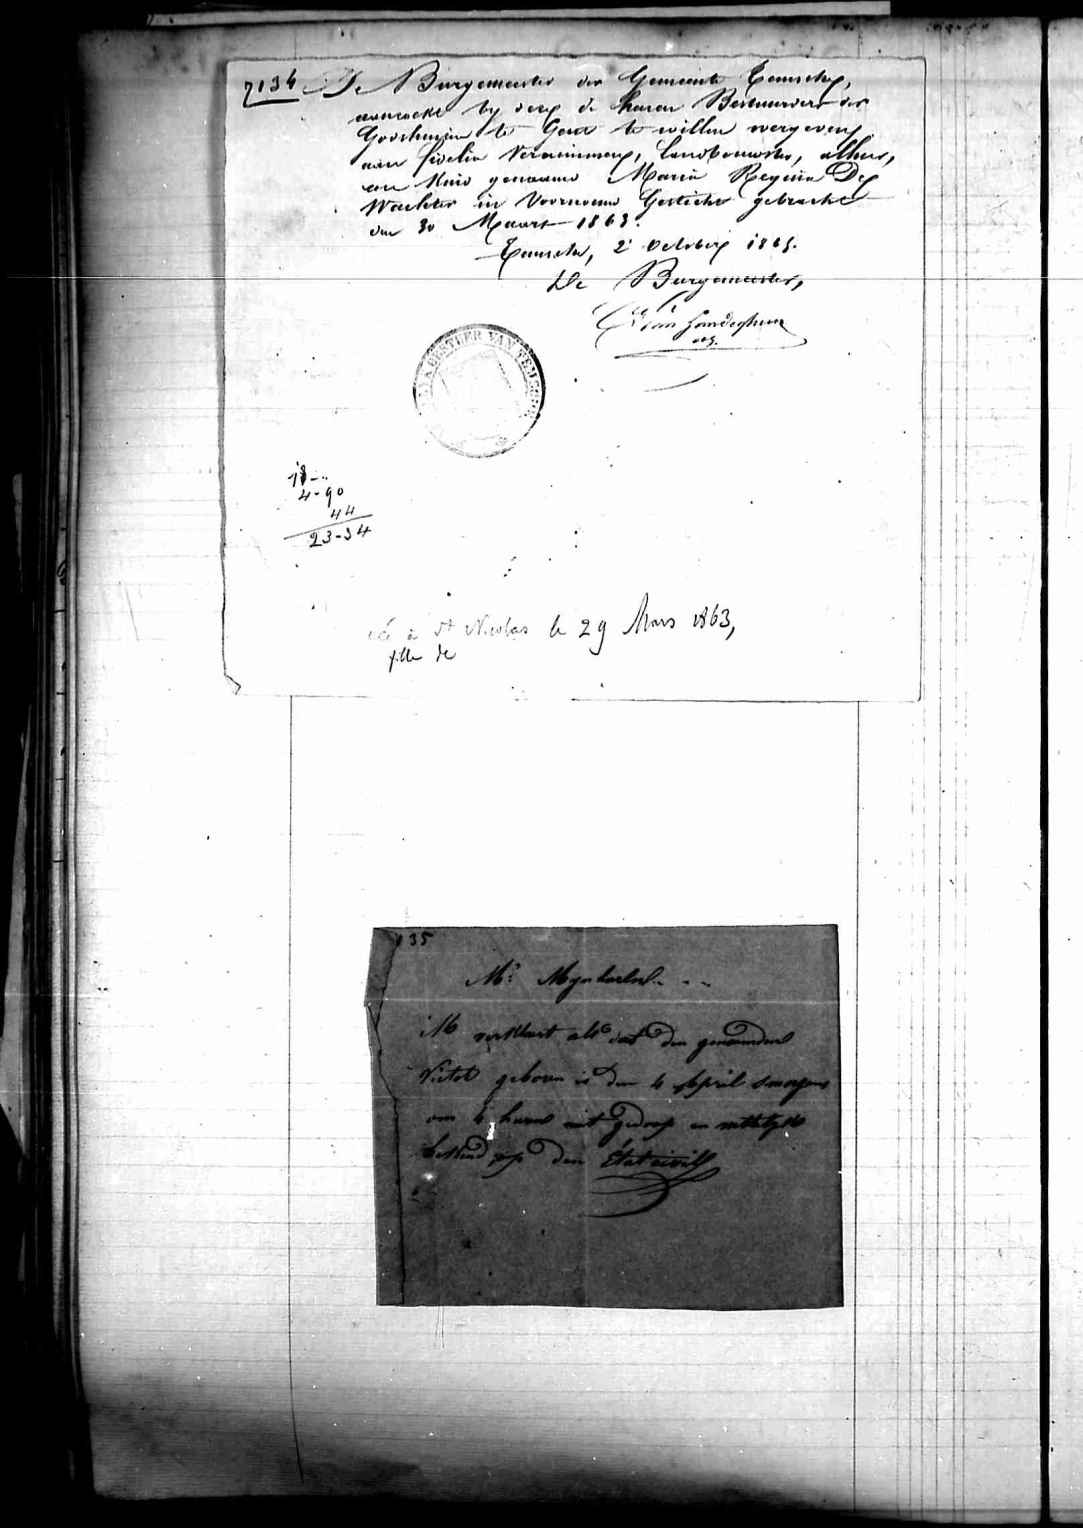 7134 De Burgemeester der Gemeente Temsche,
verzoekt by deze de heeren Bestuurders der
Godshuizen te Gend te willen
aan Fidelia Vereuinmen, Landbouwster, alhier,
een Kind genaamd Maria Regina De
Wachter in Voornoemd Gesticht gebracht
den 30 Maart 1863.
Temsche, 2 October 1863.
De Burgemeester,
Van
BURGEMEESTER VAN TEMSCHE
18-..
4-90
44
23-34
née à St Nicolas le 29 Mars 1863,
fille de
135
Mr Mynheeren...
Ik verklaert als dat den genaemden
Victor geboren is den 4 April smorgens
om 4 huren niet gedoopt en
bekend op den État civill